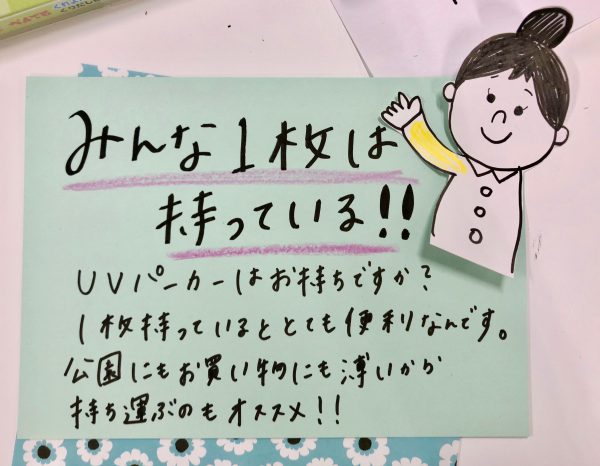 みんな1枚は
持っている!!
UVパーカーはお持ちですか?
1枚持っているととても便利なんです。
公園にもお買い物にも薄いから
持ち運ぶのもオススメ!!